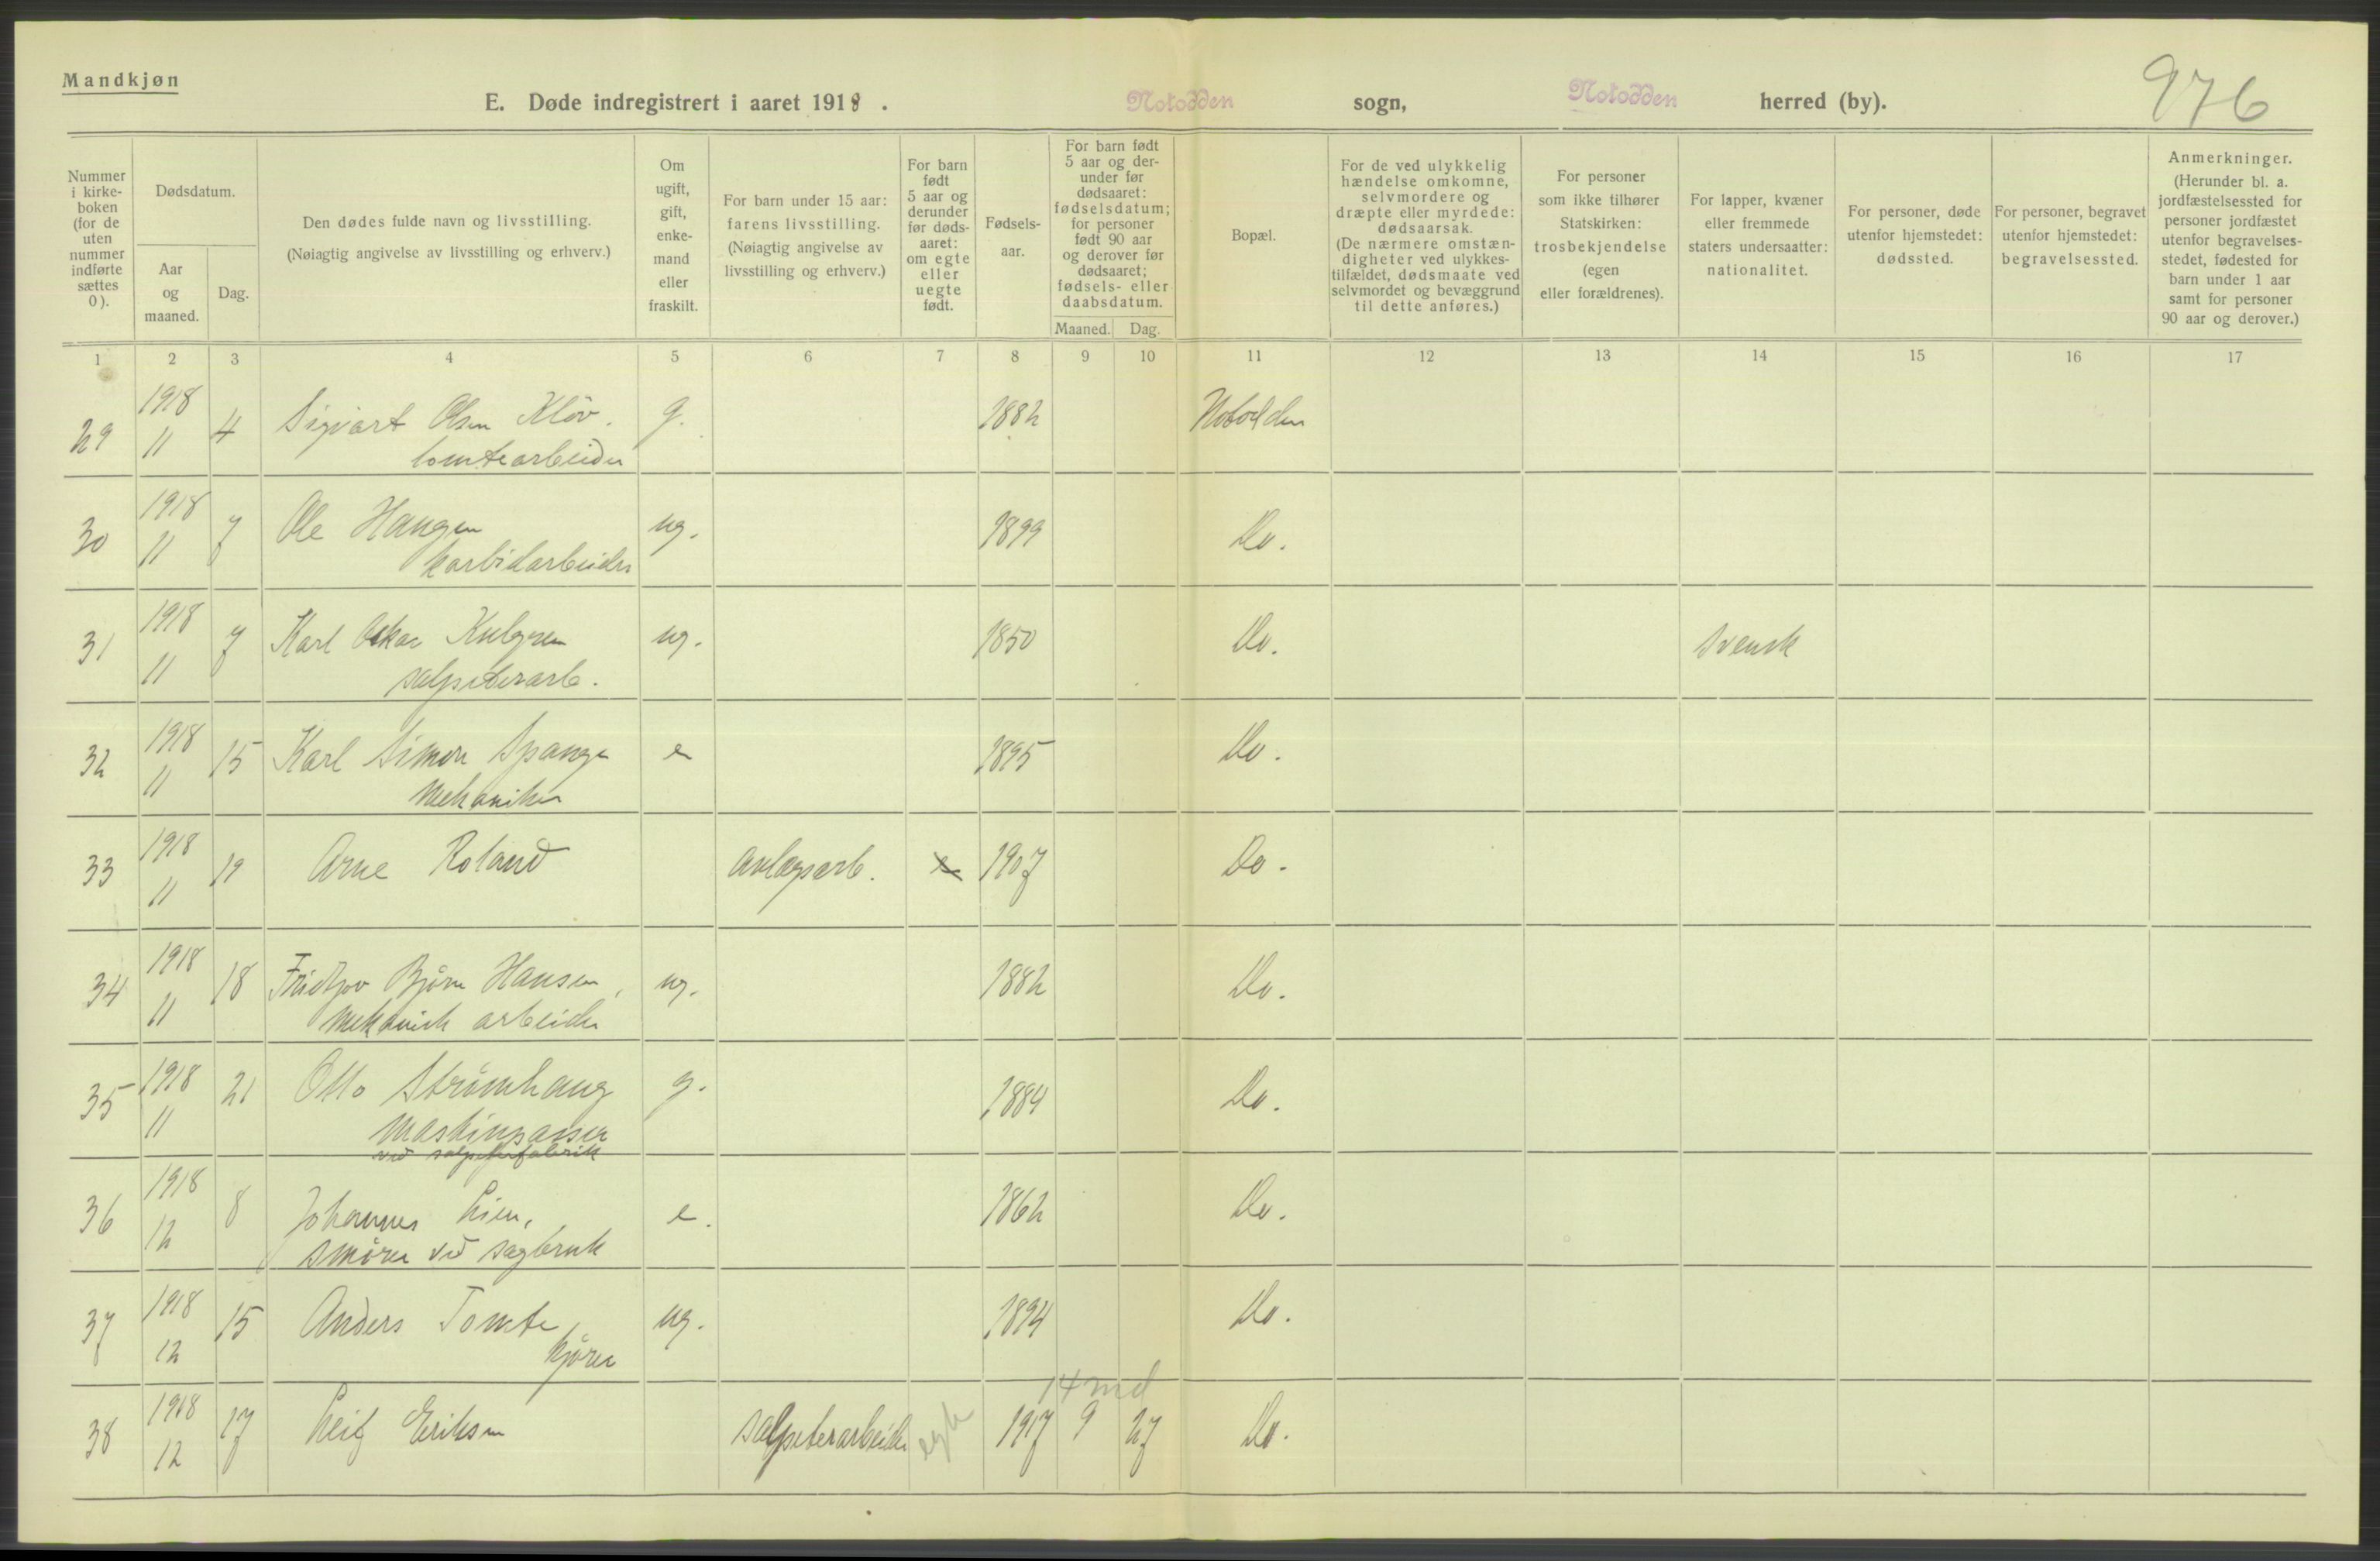 Mandkjøn
E. Døde indregistrert i aaret 1918. Notodden sogn, Notodden herred (by). 976
Nummer i kirke-boken (for de uten nummer indførte sættes 0).
Dødsdatum.
Aar og maaned.
Dag.
Den dødes fulde navn og livsstilling.
(Nøiagtig angivelse av livsstilling og erhverv.)
Om ugift, gift, enke-mand eller fraskilt.
For barn under 15 aar: farens livsstilling. (Nøiagtig angivelse av livsstilling og erhverv.)
For barn født 5 aar og derunder før døds-aaret: om egte eller uegte født.
Fødsels-aar.
For barn født 5 aar og der-under før dødsaaret: fødselsdatum; for personer født 90 aar og derover før dødsaaret; fødsels- eller daabsdatum.
Maaned. Dag.
Bopæl.
For de ved ulykkelig hændelse omkomne, selvmordere og dræpte eller myrdede: dødsaarsak. (De nærmere omstæn-digheter ved ulykkes-tilfældet, dødsmaate ved selvmordet og bevæggrund til dette anføres.)
For personer som ikke tilhører Statskirken: trosbekjendelse (egen eller forældrenes).
For lapper, kvæner eller fremmede staters undersaatter: nationalitet.
For personer, døde utenfor hjemstedet: dødssted.
For personer, begravet utenfor hjemstedet: begravelsessted.
Anmerkninger. (Herunder bl. a. jordfæstelsessted for personer jordfæstet utenfor begravelses-stedet, fødested for barn under 1 aar samt for personer 90 aar og derover.)
1 2 3 4 5 6 7 8 9 10 11 12 13 14 15 16 17
29 1918 11 4 Sigvart Olsen Kløv. g. 1882 Notodden
tomtearbeider
30 1918 11 7 Ole Haugen ug. 1899 Do.
karbidarbeider
31 1918 11 7 Karl Oskar ug. 1850 Do. svensk
salpeterarb.
32 1918 11 15 Karl Simon e 1895 Do.
Mekaniker
33 1918 11 19 Arne Roland anlægsarb. e 1907 Do.
34 1918 11 18 Fridtjov Bjørn Hansen, ug. 1882 Do.
Mekanisk arbeider
35 1918 11 21 Otto Strømhaug g. 1884 Do.
Maskinpasser
ved salpeterfabrik
36 1918 12 8 Johannes Lien, e. 1862 Do.
smører ved sagbruk
37 1918 12 15 Anders Tomte, ug. 1894 Do.
kjører
14 md
38 1918 12 17 Leif Eriksen salpeterarbeider egte 1917 9 27 Do.